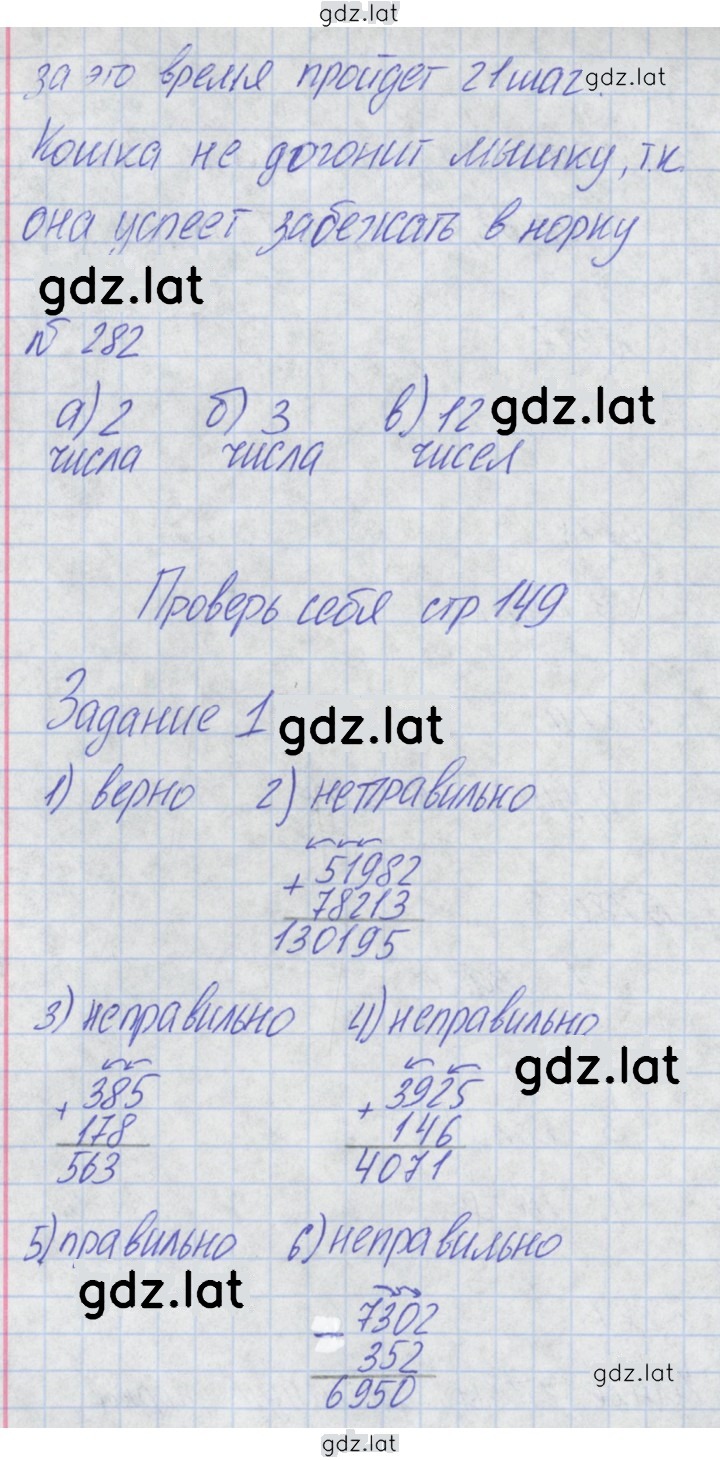 gdz.lat
за это время пройдет 21шаг. gdz.lat
Кошка не догонит мышку, т.к.
она успеет забежать в норку
gdz.lat
№ 282
а) 2 б) 3 в) 12 gdz.lat
числа числа чисел
Проверь себя стр 149
Задание 1 gdz.lat
1) верно 2) неправильно
+ 51982
78213
130195
3) неправильно 4) неправильно
gdz.lat
+ 385 + 3925
178 146
563 4071
5) правильно 6) неправильно
gdz.lat
- 7302
352
6950 gdz.lat
gdz.lat